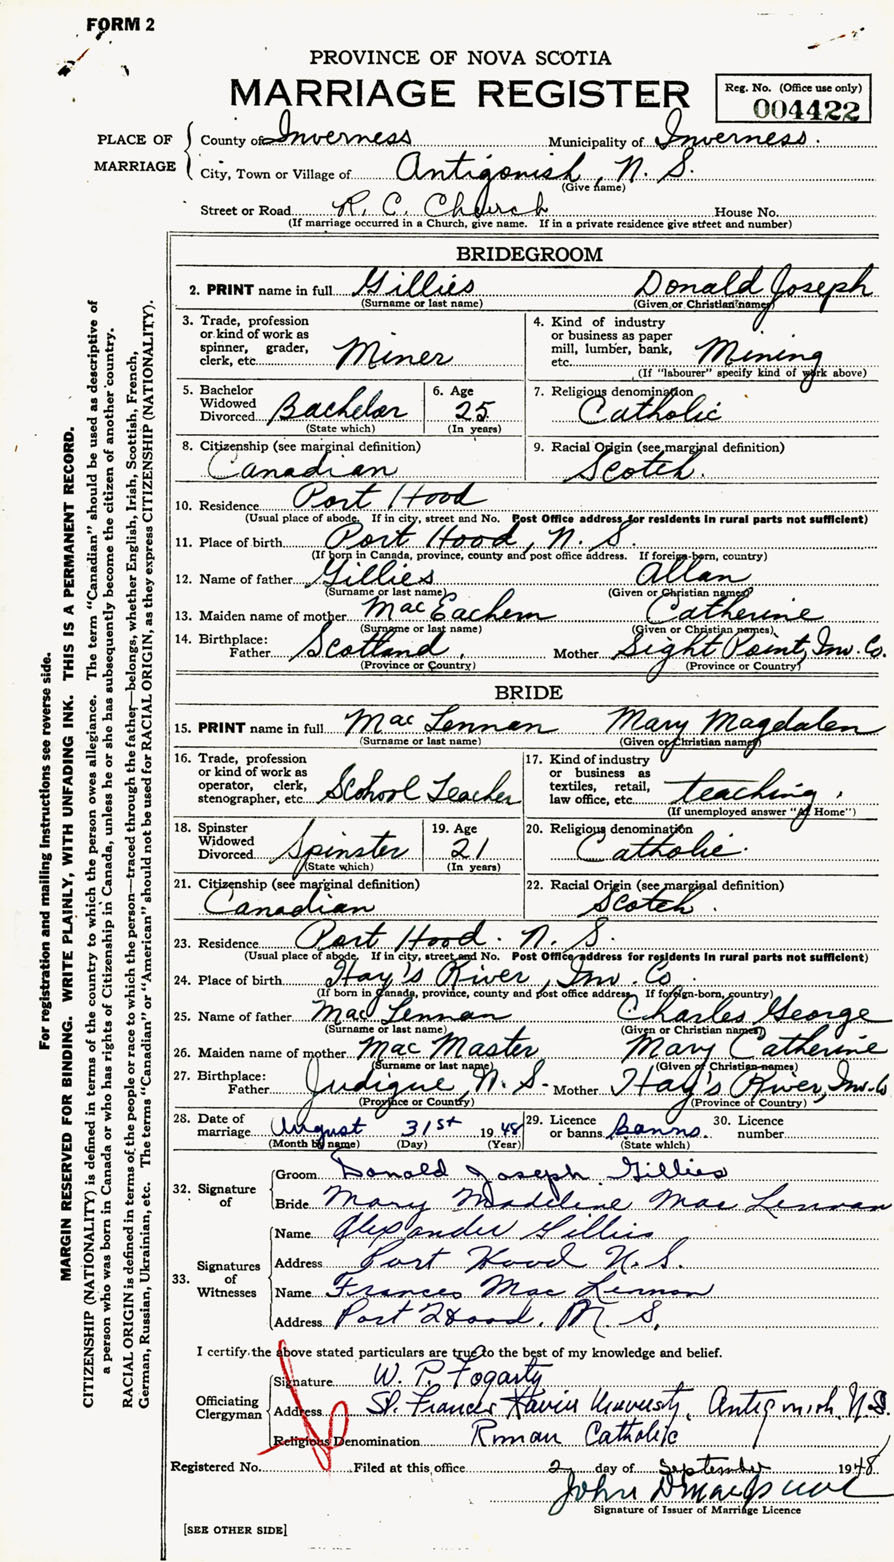 FORM 2
PROVINCE OF NOVA SCOTIA
MARRIAGE REGISTER
Reg. No. (Office use only)
004422
PLACE OF MARRIAGE
County of Inverness Municipality of Inverness.
City, Town or Village of Antigonish, N. S.
(Give name)
Street or Road R. C. Church House No.
(If marriage occurred in a Church, give name. If in a private residence give street and number)
BRIDEGROOM
2. PRINT name in full Gillies Donald Joseph
(Surname or last name) (Given or Christian name)
3. Trade, profession or kind of work as spinner, grader, clerk, etc. Miner
4. Kind of industry or business as paper mill, lumber, bank, etc. Mining
(If "labourer" specify kind of work above)
5. Bachelor Widowed Divorced Bachelor
(State which)
6. Age 25
(In years)
7. Religious denomination Catholic
8. Citizenship (see marginal definition) Canadian
9. Racial Origin (see marginal definition) Scotch.
10. Residence Port Hood
(Usual place of abode. If in city, street and No. Post Office address for residents in rural parts not sufficient)
11. Place of birth Port Hood, N. S.
(If born in Canada, province, county and post office address. If foreign-born, country)
12. Name of father Gillies Allan
(Surname or last name) (Given or Christian names)
13. Maiden name of mother MacEachern Catherine
(Surname or last name) (Given or Christian names)
14. Birthplace: Father Scotland. Mother Sight Point, Inv. Co.
(Province or Country) (Province or Country)
BRIDE
15. PRINT name in full Mac Lennan Mary Magdalen
(Surname or last name) (Given or Christian name)
16. Trade, profession or kind of work as operator, clerk, stenographer, etc. School Teacher
17. Kind of industry or business as textiles, retail, law office, etc. teaching.
(If unemployed answer "At Home")
18. Spinster Widowed Divorced Spinster
(State which)
19. Age 21
(In years)
20. Religious denomination Catholic.
21. Citizenship (see marginal definition) Canadian
22. Racial Origin (see marginal definition) Scotch.
23. Residence Port Hood. N. S.
(Usual place of abode. If in city, street and No. Post Office address for residents in rural parts not sufficient)
24. Place of birth Hay's River, Inv. Co.
(If born in Canada, province, county and post office address. If foreign-born, country)
25. Name of father Mac Lennan Charles George
(Surname or last name) (Given or Christian names)
26. Maiden name of mother Mac Master Mary Catherine
(Surname or last name) (Given or Christian names)
27. Birthplace: Father Judique, N. S. Mother Hay's River, Inv. Co
(Province or Country) (Province of Country)
28. Date of marriage August 31st 1948
(Month by name) (Day) (Year)
29. Licence or banns Banns.
(State which)
30. Licence number
32. Signature of
Groom Donald Joseph Gillies
Bride Mary Madeline Mac Lennan
33. Signatures of Witnesses
Name Alexander Gillis
Address Port Hood N. S.
Name Frances Mac Lennan
Address Port Hood. N. S.
I certify the above stated particulars are true to the best of my knowledge and belief.
Officiating Clergyman
Signature W. P. Fogarty
Address St. Francis Xavier University, Antigonish, N.S.
Religious Denomination Roman Catholic
Registered No. Filed at this office 2 day of September 1948
John
Signature of Issuer of Marriage Licence
[SEE OTHER SIDE]
For registration and mailing instructions see reverse side.
MARGIN RESERVED FOR BINDING. WRITE PLAINLY, WITH UNFADING INK. THIS IS A PERMANENT RECORD.
CITIZENSHIP (NATIONALITY) is defined in terms of the country to which the person owes allegiance. The term "Canadian" should be used as descriptive of
a person who was born in Canada or who has rights of Citizenship in Canada, unless he or she has subsequently become the citizen of another country.
RACIAL ORIGIN is defined in terms of the people or race to which the person—traced through the father—belongs, whether English, Irish, Scottish, French,
German, Russian, Ukrainian, etc. The terms "Canadian" or "American" should not be used for RACIAL ORIGIN, as they express CITIZENSHIP (NATIONALITY).